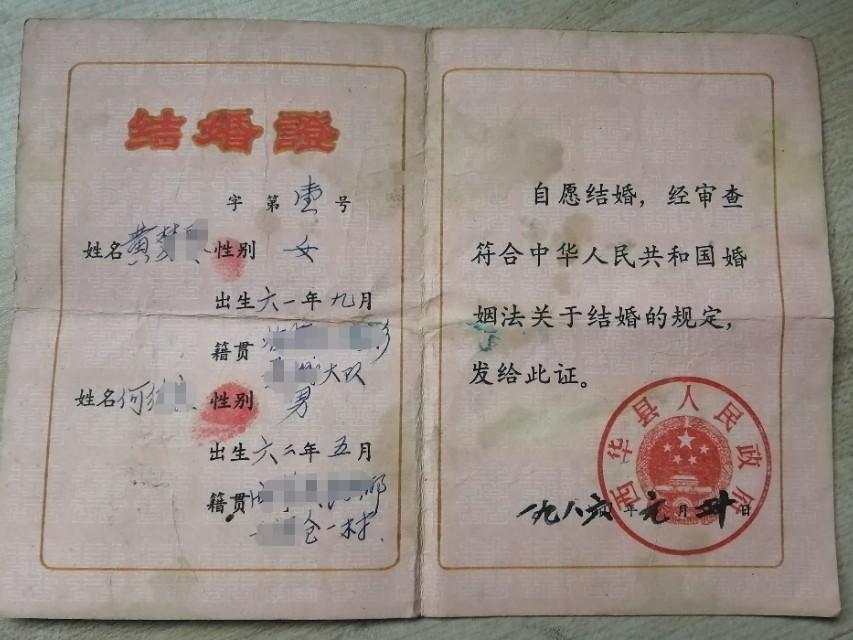 结婚證
字 第 壹 号
姓名 黄 性别 女
出生 六一 年 九 月
籍贯
大队
姓名 何 性别 男
出生 六二 年 五 月
籍贯
一村.
自愿结婚，经审查
符合中华人民共和国婚
姻法关于结婚的规定，
发给此证。
西华县人民政府
一九八六 年 元 月 日